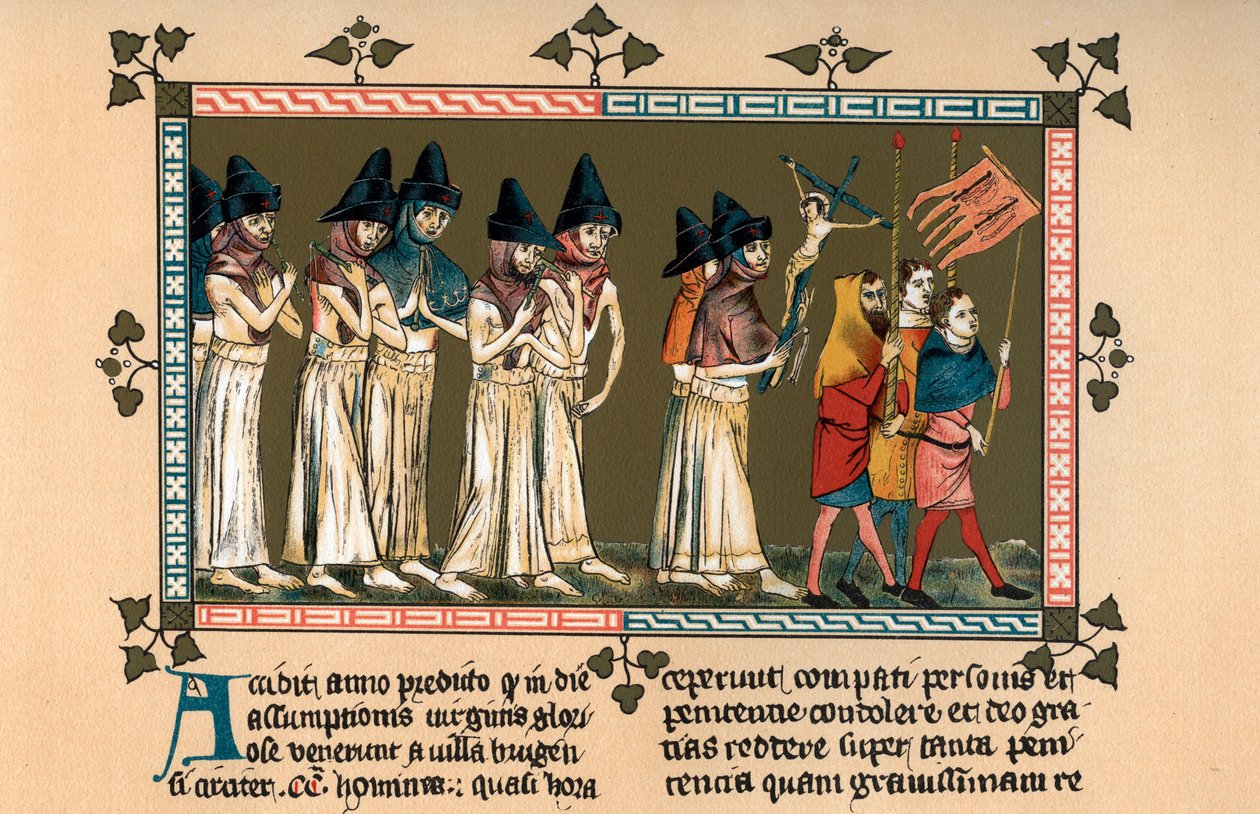 Accidit anno predicto ꝙ in die
assumptionis virginis glori-
ose venerunt a villa brugen
si circiter .CC. homines : quasi hora
ceperunt compati personis et
penitentie condolere et deo gra-
tias reddere super tanta peni-
tencia quam gravissimam re